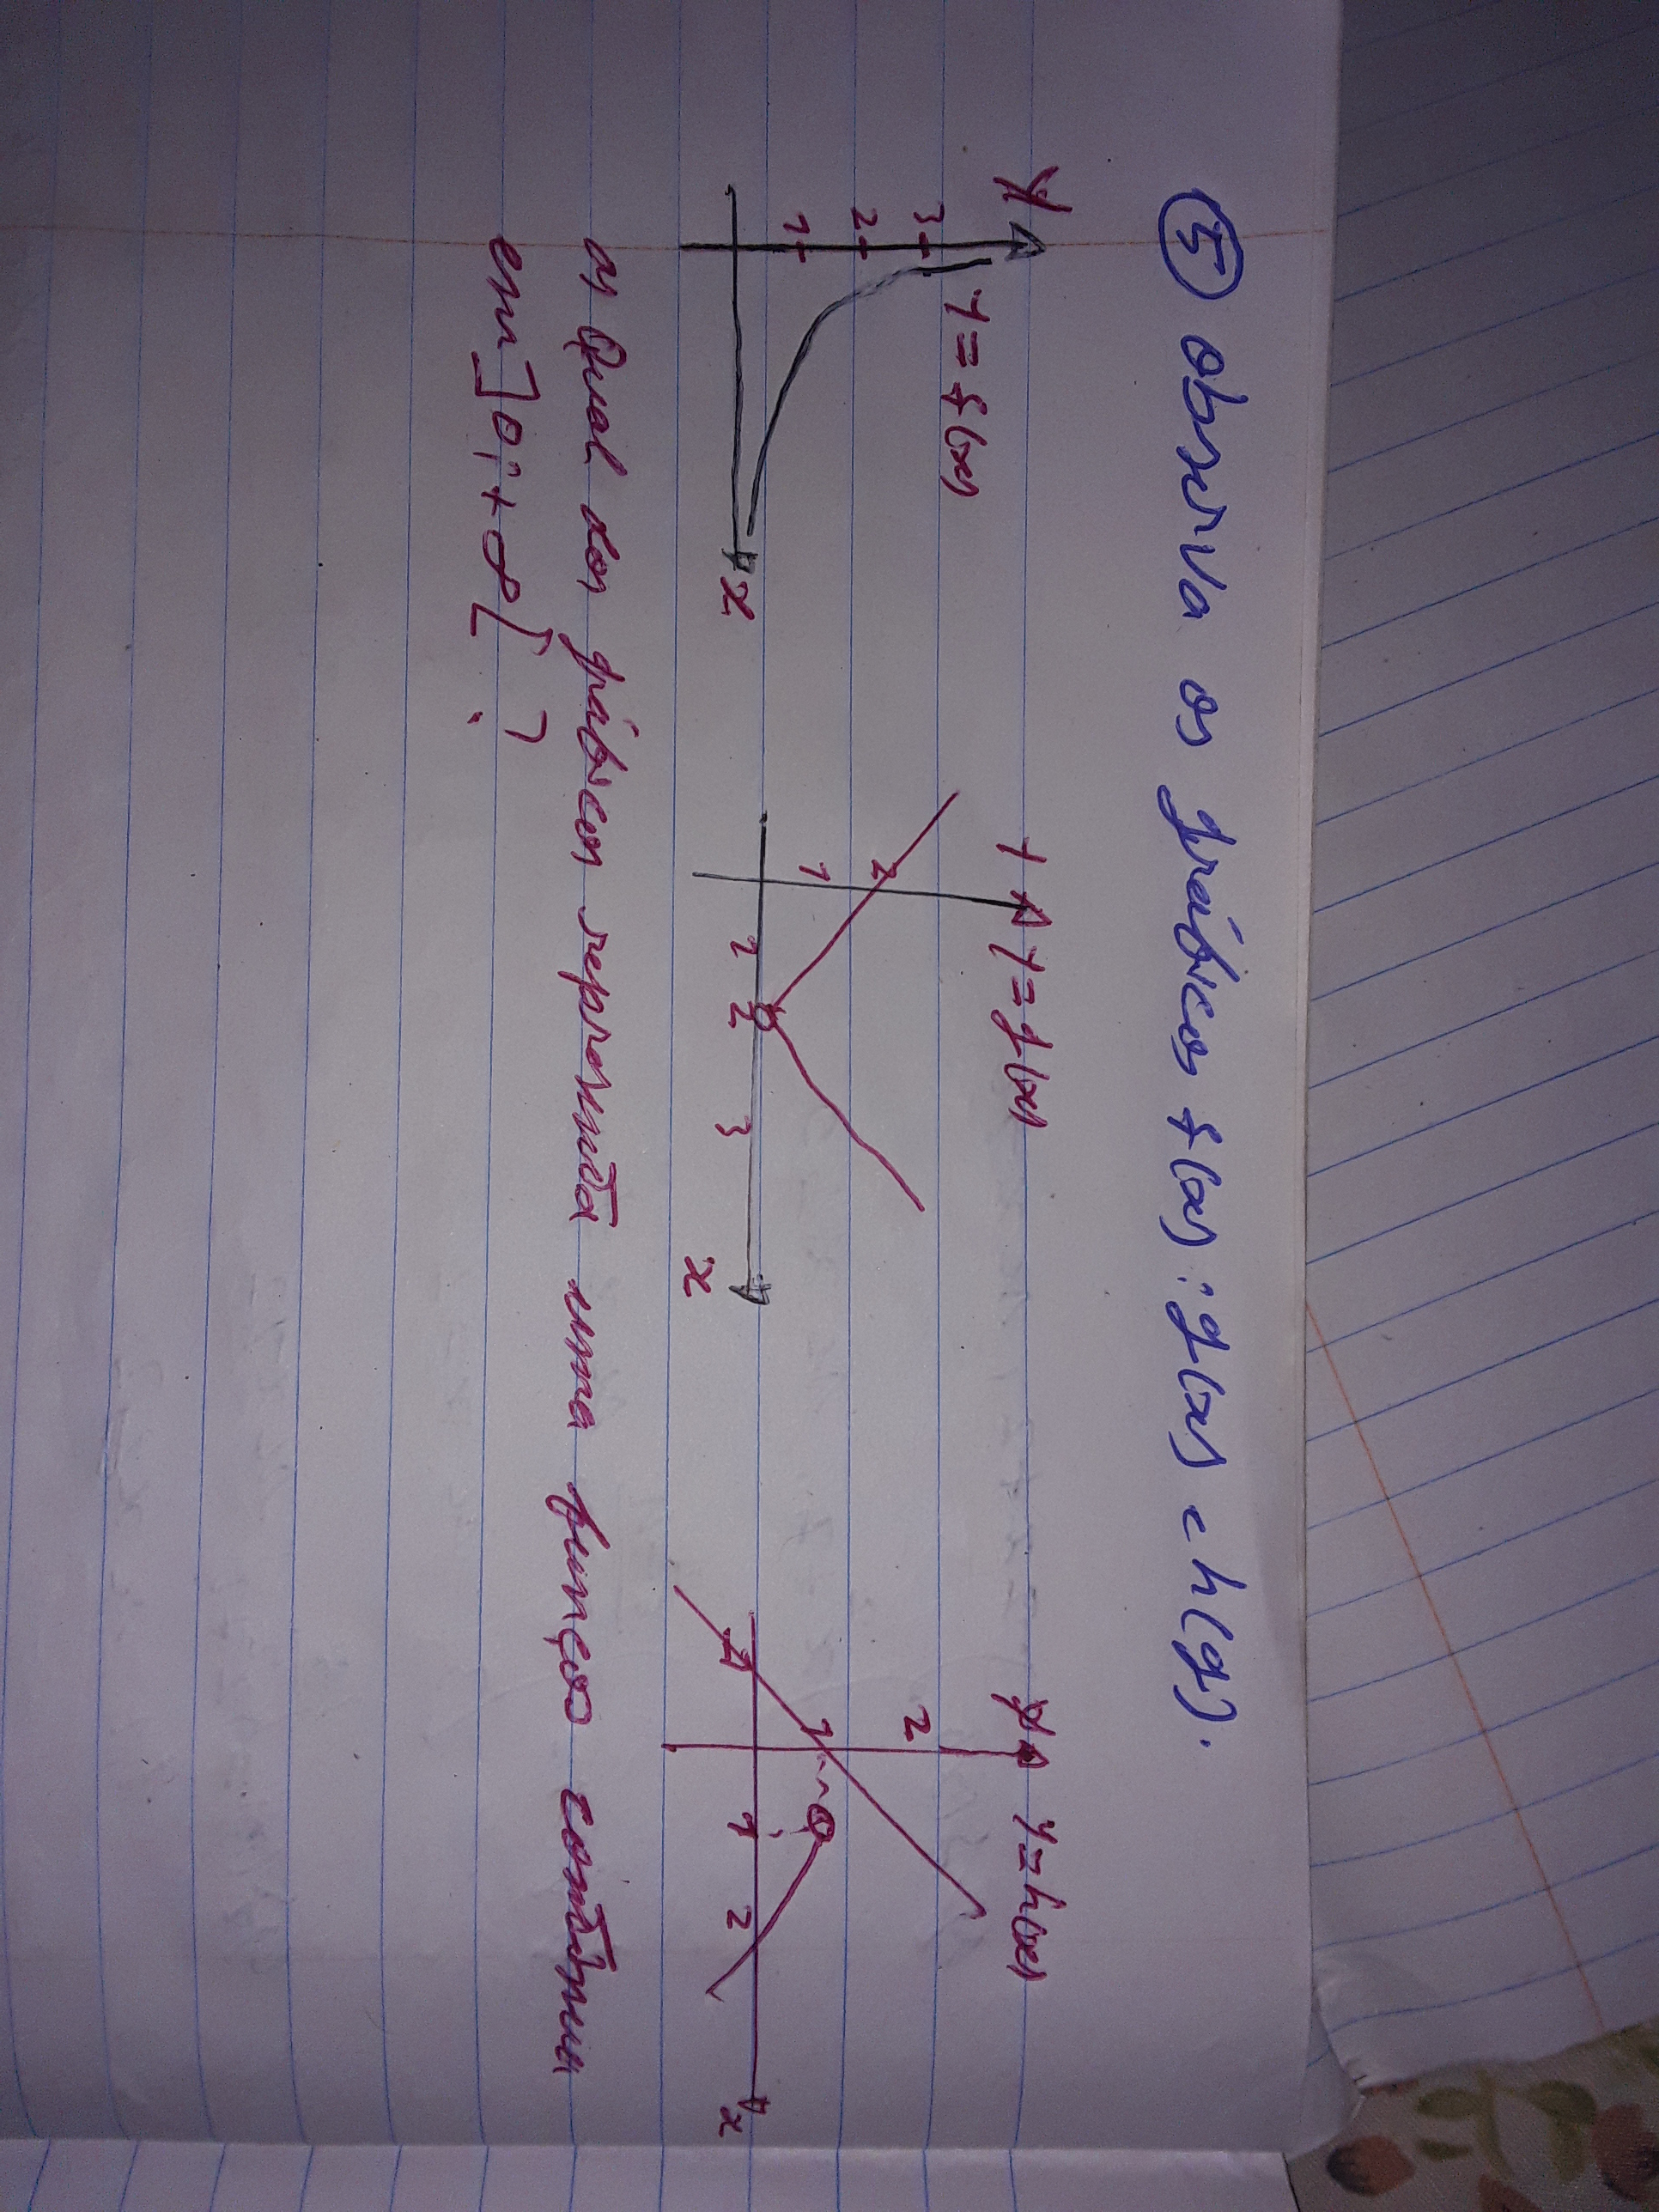 5 observa os gráficos f(x): g(x) e h(g).
y 3 2 1 y = f(x) x
y y = g(x) 2 1 1 2 3 x
y y = h(x) 2 1 -1 1 2 x
a) Qual dos gráficos representa uma função contínua
em ]0; +∞[ ?